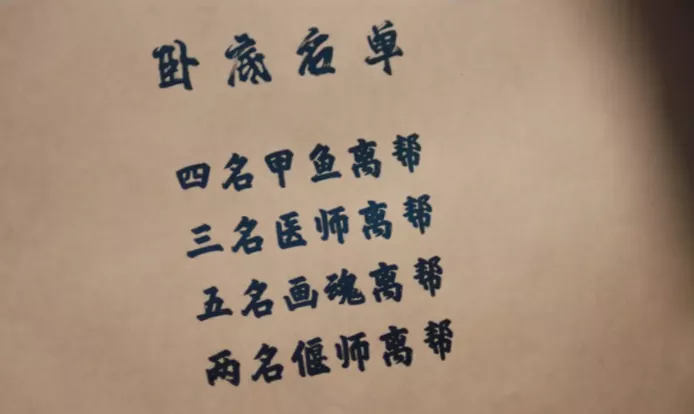 卧底名单
四名甲鱼离帮
三名医师离帮
五名画魂离帮
两名偃师离帮